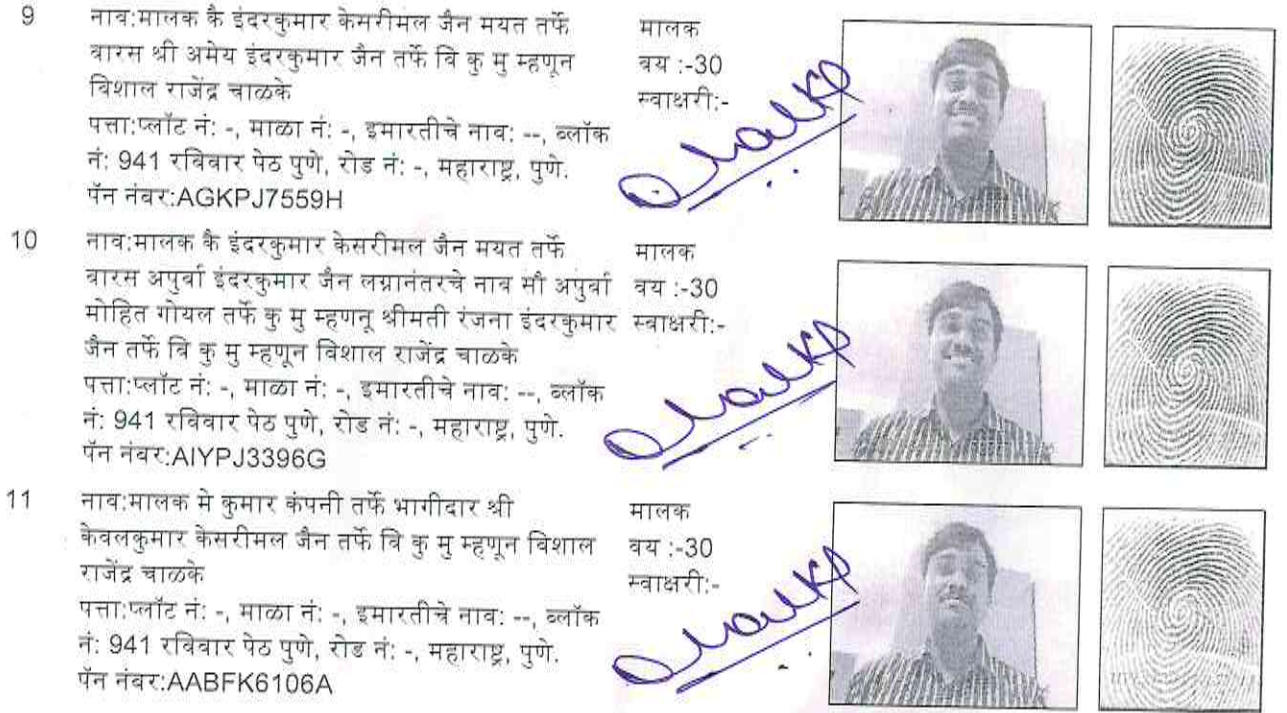 9
नाव:मालक कै इंदरकुमार केसरीमल जैन मयत तर्फे
वारस श्री अमेय इंदरकुमार जैन तर्फे वि कु मु म्हणून
विशाल राजेंद्र चाळके
पत्ता:प्लॉट नं: -, माळा नं: -, इमारतीचे नाव: --, ब्लॉक
नं: 941 रविवार पेठ पुणे, रोड नं: -, महाराष्ट्र, पुणे.
पॅन नंबर:AGKPJ7559H
मालक
वय :-30
स्वाक्षरी:-
10
नाव:मालक कै इंदरकुमार केसरीमल जैन मयत तर्फे
वारस अपुर्वा इंदरकुमार जैन लग्नानंतरचे नाव सौ अपुर्वा
मोहित गोयल तर्फे कु मु म्हणनू श्रीमती रंजना इंदरकुमार
जैन तर्फे वि कु मु म्हणून विशाल राजेंद्र चाळके
पत्ता:प्लॉट नं: -, माळा नं: -, इमारतीचे नाव: --, ब्लॉक
नं: 941 रविवार पेठ पुणे, रोड नं: -, महाराष्ट्र, पुणे.
पॅन नंबर:AIYPJ3396G
मालक
वय :-30
स्वाक्षरी:-
11
नाव:मालक मे कुमार कंपनी तर्फे भागीदार श्री
केवलकुमार केसरीमल जैन तर्फे वि कु मु म्हणून विशाल
राजेंद्र चाळके
पत्ता:प्लॉट नं: -, माळा नं: -, इमारतीचे नाव: --, ब्लॉक
नं: 941 रविवार पेठ पुणे, रोड नं: -, महाराष्ट्र, पुणे.
पॅन नंबर:AABFK6106A
मालक
वय :-30
स्वाक्षरी:-